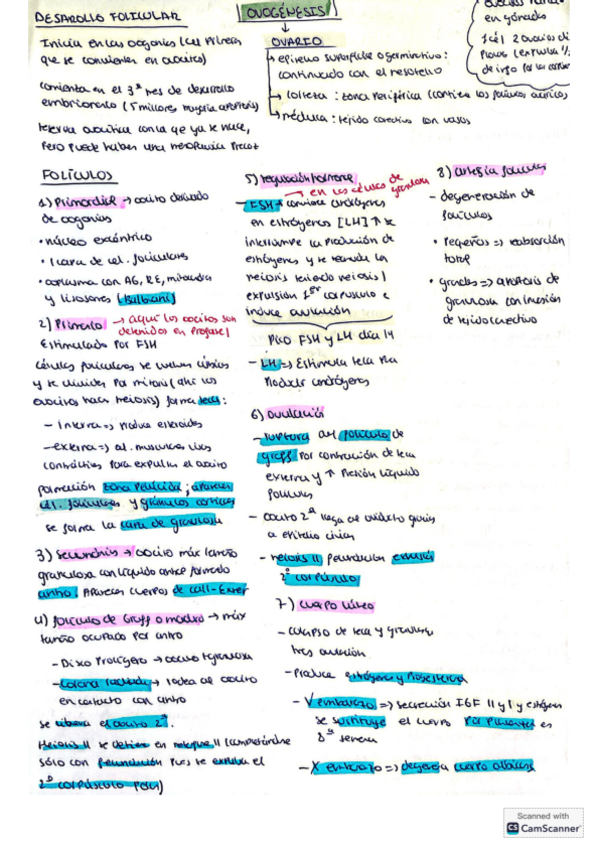 OVOGÉNESIS
DESAROLLO FOLICULAR
Inicia en las oogonias (cel primera
que se convierten en ovocito)
comienza en el 3er mes de desarrollo
embrionario (5 millones, mayoría apoptosis)
reserva ovocitica con la que ya se nace,
pero puede haber una menopausia precoz
OVARIO
epitelio superficial o germinativo:
continuado con el mesotelio
corteza: zona periférica (contiene los folículos ováricos)
médula: tejido conectivo con vasos
en gónadas
FOLÍCULOS
1) Primordial → ovocito derivado
de oogonias
• núcleo excéntrico
• 1 capa de cel. foliculares
• ooplasma con AG, RE, mitocondria
y lisosomas (Balbiani)
2) Primario → aquí los oocitos son
detenidos en Profase I
Estimulado por FSH
células foliculares se vuelven cúbicas
y se dividen por mitosis (ahí los
ovocitos hacen meiosis) forma teca:
- interna => produce esteroides
- externa => cel. musculares lisas
contráctiles para expulsar el ovocito
formación zona pelúcida; aparecen
cel. foliculares y gránulos corticales
se forma la capa de granulosa
3) Secundario → oocito más tamaño
granulosa con líquido antral formando
antro. Aparecen cuerpos de call-Exner
4) folículo de Graff o maduro → máx
tamaño ocupado por antro
- Disco Prolígero → oocito + granulosa
- corona radiada → rodea al oocito
en contacto con antro
se libera el oocito 2º.
Meiosis II se detiene en metafase II (completándose
sólo con fecundación pues se expulsa el
2º corpúsculo polar)
5) regulación hormonal
→ en las células de granulosa
- FSH → convierte andrógenos
en estrógenos [LH] ↑ se
interrumpe la producción de
estrógenos y se reanuda la
meiosis (acabando meiosis I
expulsión 1er corpúsculo e
induce ovulación
Pico FSH y LH día 14
- LH => Estimula teca para
producir andrógenos
6) Ovulación
- ruptura del folículo de
graff por contracción de teca
externa y ↑ presión líquido
- oocito 2º llega al oviducto gracias
a epitelio
- meiosis II fecundación expulsa
2º corpúsculo
7) cuerpo lúteo
- colapso de teca y granulosa
tras ovulación
- Produce estrógenos y progesterona
- V embarazo => secreción IGF II y I y estrógenos
se sustituye el cuerpo por placenta en
8ª semana
- X embarazo => degenera cuerpo albicans
8) atresia folicular
- degeneración de
folículos
• pequeños => reabsorción
total
• grandes => apoptosis de
granulosa con invasión
de tejido conectivo
Scanned with
CS CamScanner